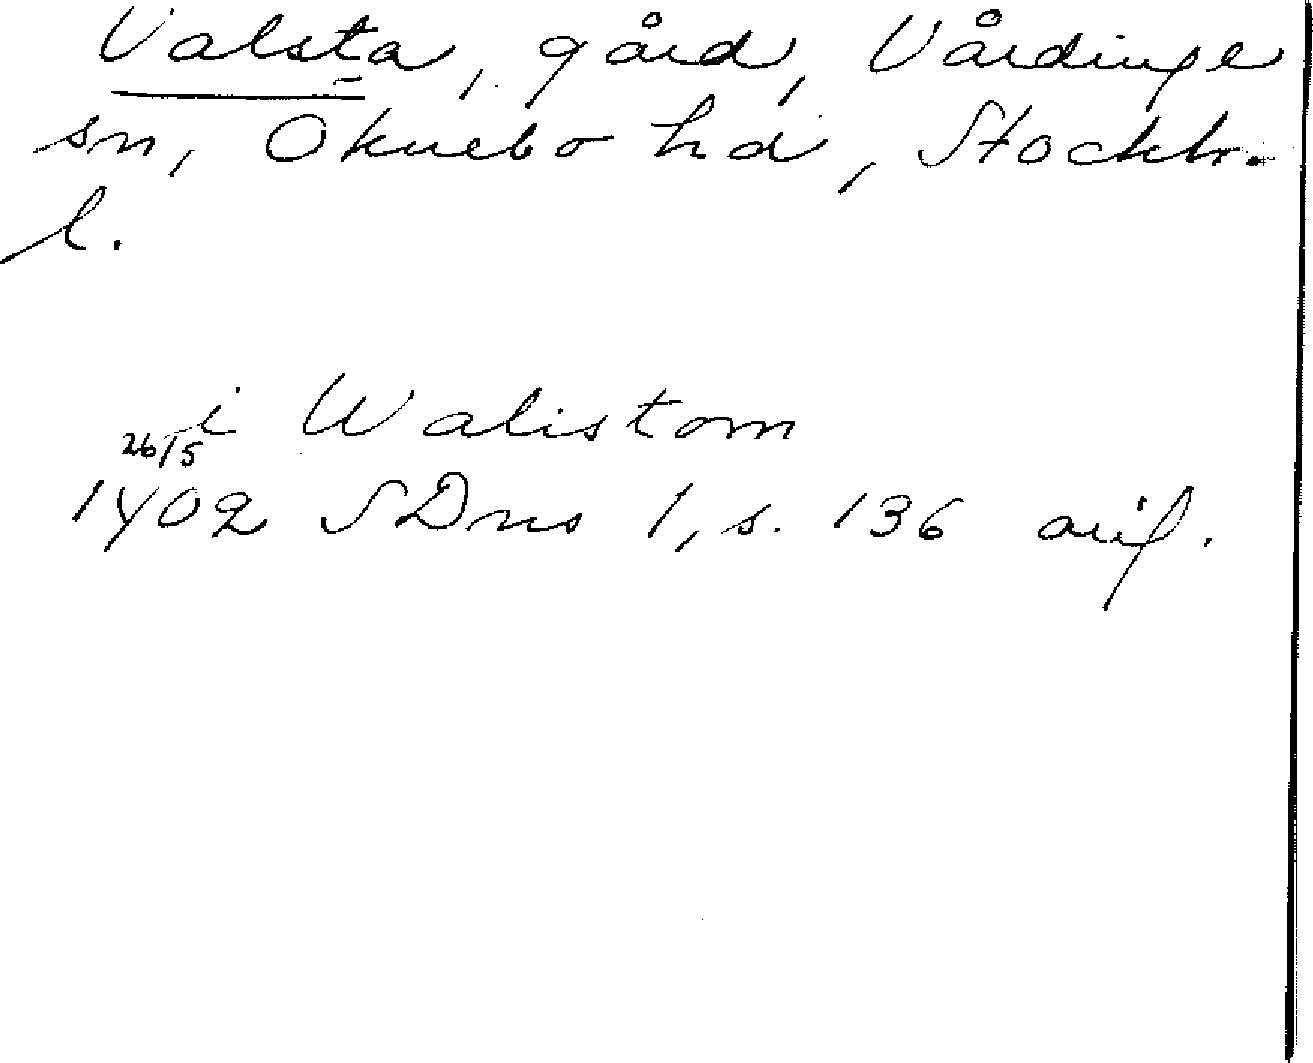 Valsta, gård, Vårdinge
sn, Öknebo hd, Stockh.
l.
i Walistom
26/5
1402 SDns 1, s. 136 orig.